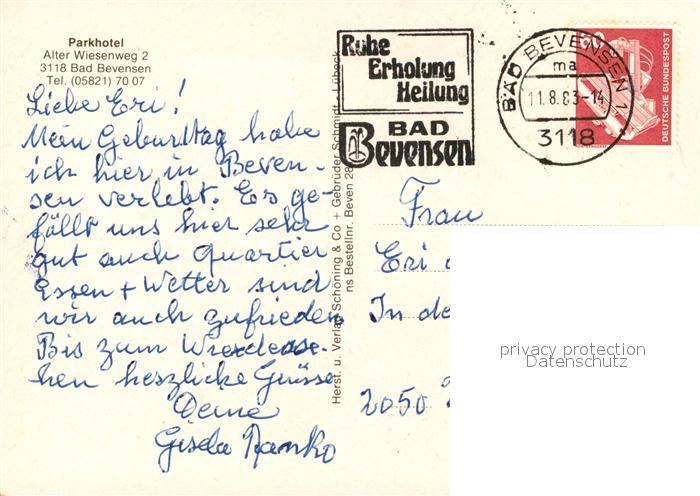 Parkhotel
Alter Wiesenweg 2
3118 Bad Bevensen
Tel. (05821) 70 07
Liebe Eri!
Mein Geburttag habe
ich hier in Beven-
sen verlebt. Es ge-
fällt uns hier sehr
gut auch Quartier
Essen + Wetter sind
wir auch zufrieden
Bis zum Wiederse-
hen herzliche Grüsse
Deine
Gisela
Ruhe
Erholung
Heilung
BAD
Bevensen
BAD BEVENSEN 1
ma
11.8.83-14
3118
DEUTSCHE BUNDESPOST
Herst. u. Verlag Schöning & Co + Gebrüder Schmidt, Lübeck
ns Bestellnr. Beven 28
Frau
Eri
In de
2050
privacy protection
Datenschutz